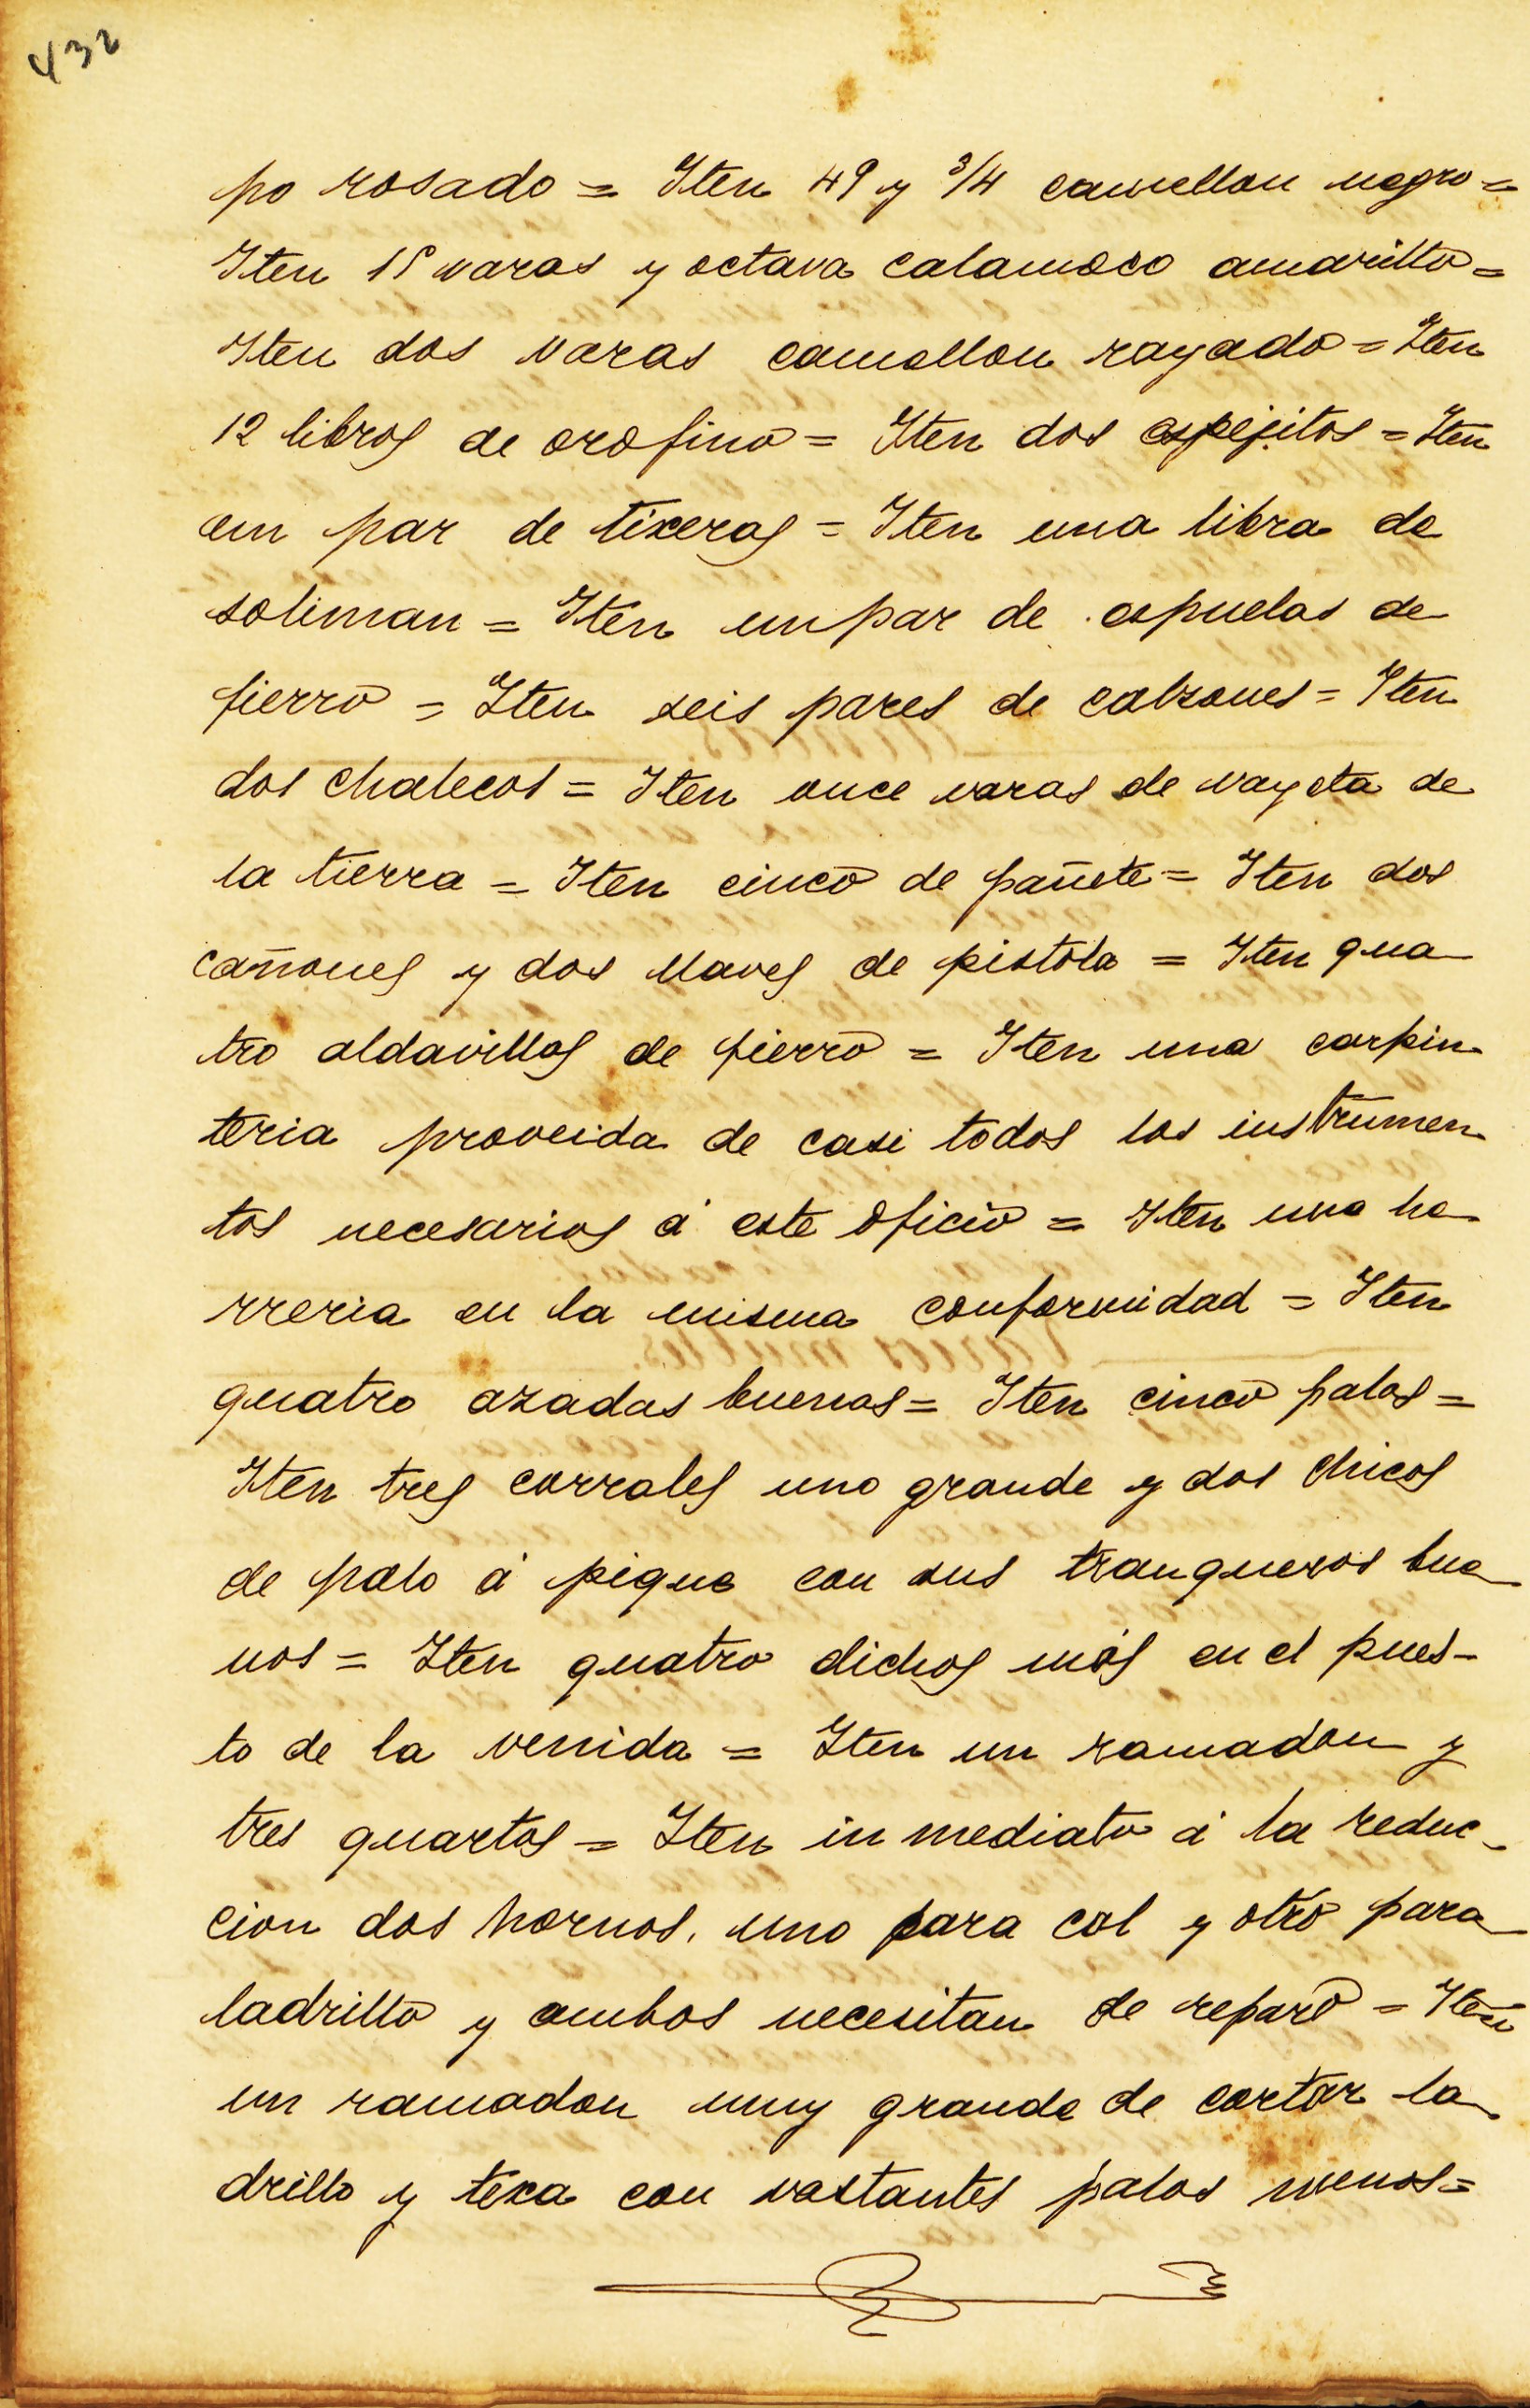 432
po rosado = Iten 49 y 3/4 camellon negro =
Iten 15 varas y octava calamoco amarillo =
Iten dos varas camellon rayado = Iten
12 libros de oro fino = Iten dos espejitos = Iten
un par de tixeras = Iten una libra de
soliman = Iten un par de espuelas de
fierro = Iten seis pares de calzones = Iten
dos chalecos = Iten once varas de vayeta de
la tierra = Iten cinco de pañete = Iten dos
cañones y dos llaves de pistola = Iten qua
tro aldavillas de fierro = Iten una carpin
teria proveida de casi todos los instrumen
tos necesarios á este oficio = Iten una he
rreria en la misma conformidad = Iten
quatro azadas buenas = Iten cinco palas =
Iten tres corrales uno grande y dos chicos
de palo á pique con sus tranqueros bue
nos = Iten quatro dichos más en el pues-
to de la venida = Iten un ramadon y
tres quartos = Iten in mediato á la reduc-
cion dos hornos, uno para cal y otro para
ladrillo y ambos necesitan de reparo = Iten
un ramadon muy grande de cortar la
drillo y texa con vastantes palos menos =